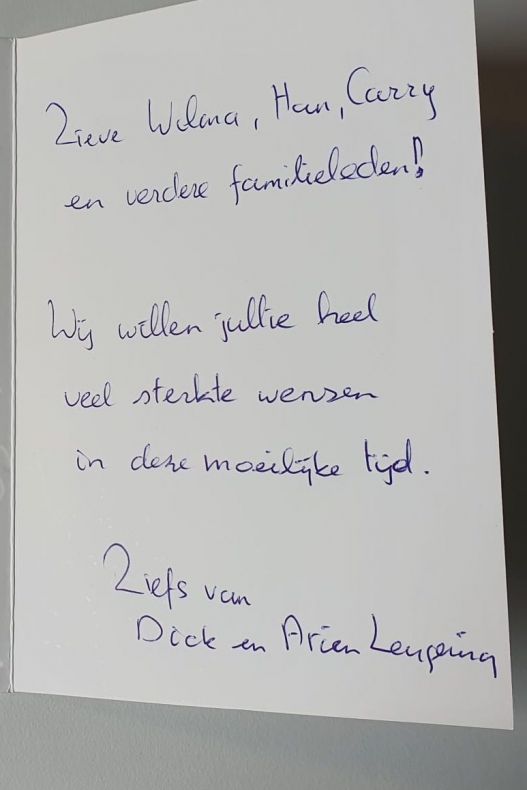 Lieve Wilma, Han, Carry
en verdere familieleden!
Wij willen jullie heel
veel sterkte wensen
in deze moeilijke tijd.
Liefs van
Dick en Arien